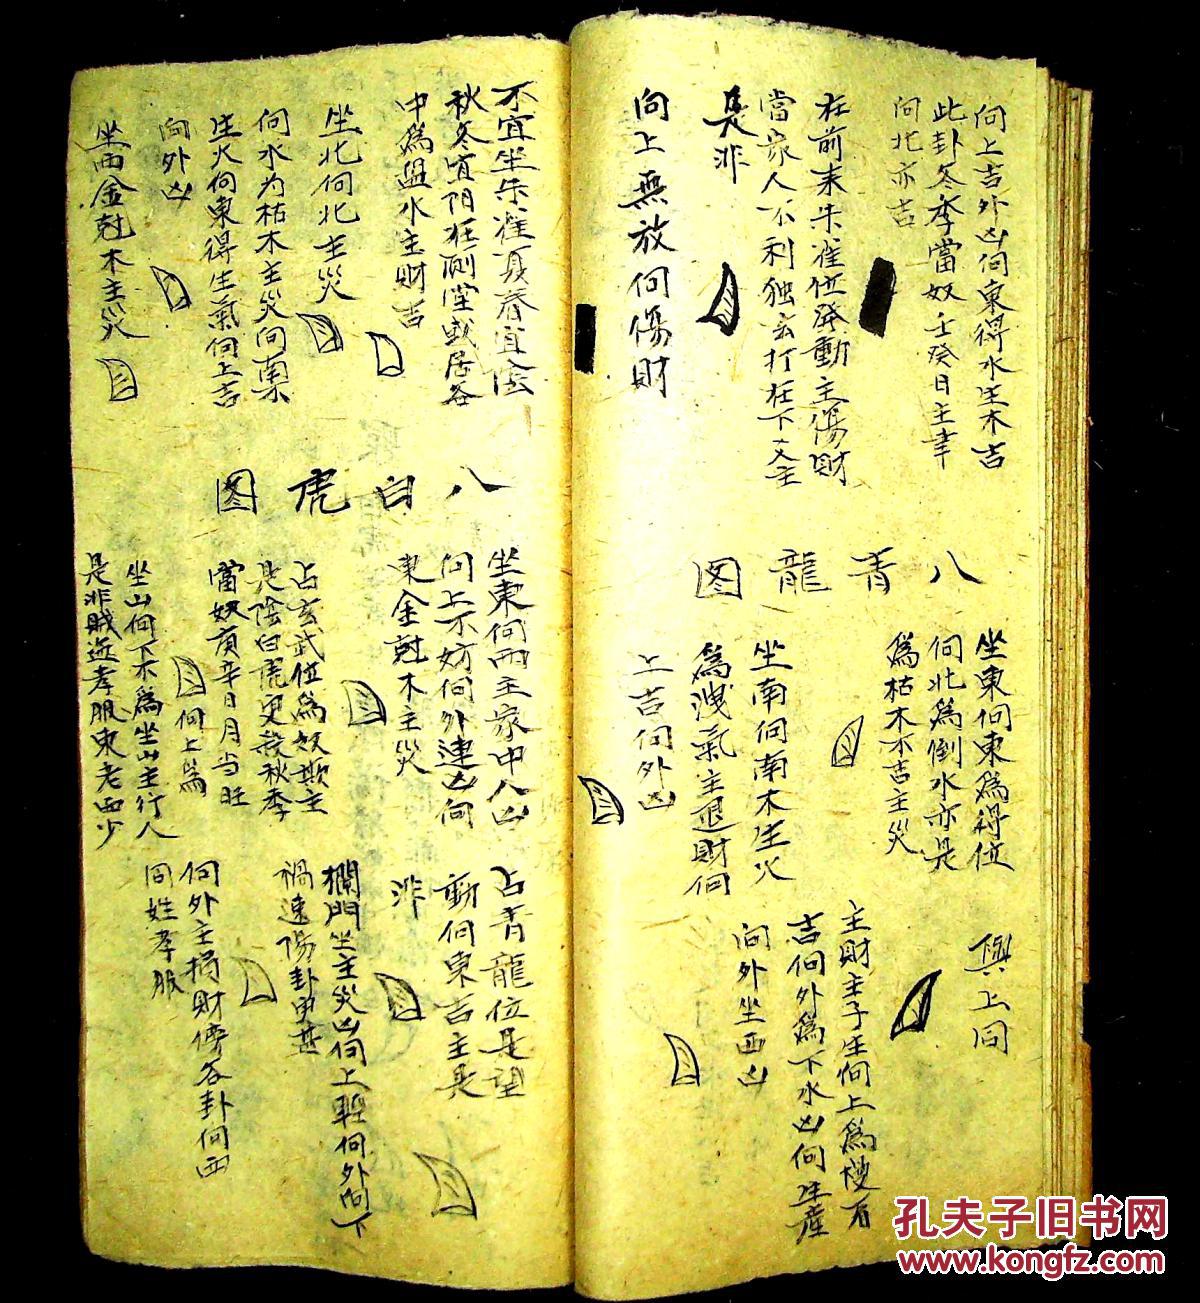 向上吉外凶向東得水生木吉
此卦冬季當奴壬癸日主幸
向北亦吉
在前末朱雀位發動主傷財
當家人不利独玄打在下
是非
向上無放向傷財
八青龍图
坐東向東為得位
向北為倒水亦是
為枯木不吉主災
坐南向南木生火
為洩氣主退財向
上吉向外凶
與上同
主財主子生向上為
吉向外為下水凶向生產
向外坐西凶
不宜坐朱雀夏春宜陰
秋冬宜阳在側堂或居各
中為溫水主財吉
坐北向北主災
向水为枯木主災向南
生火向東得生氣向上吉
向外凶
坐西金尅木主災
八白虎图
坐東向西主家中人凶
向上不妨向外連凶向
東金尅木主災
占玄武位為奴欺主
是陰白虎更襲秋季
當奴庚辛日月当旺
向上為
坐山向下不為坐山主行人
是非賊盗孝服東老西少
占青龍位是望
動向東吉主是
非
欄門坐主災凶向上 向外向下
禍速陽卦
向外主損財傳各卦向西
同姓孝服
孔夫子旧书网
www.kongfz.com